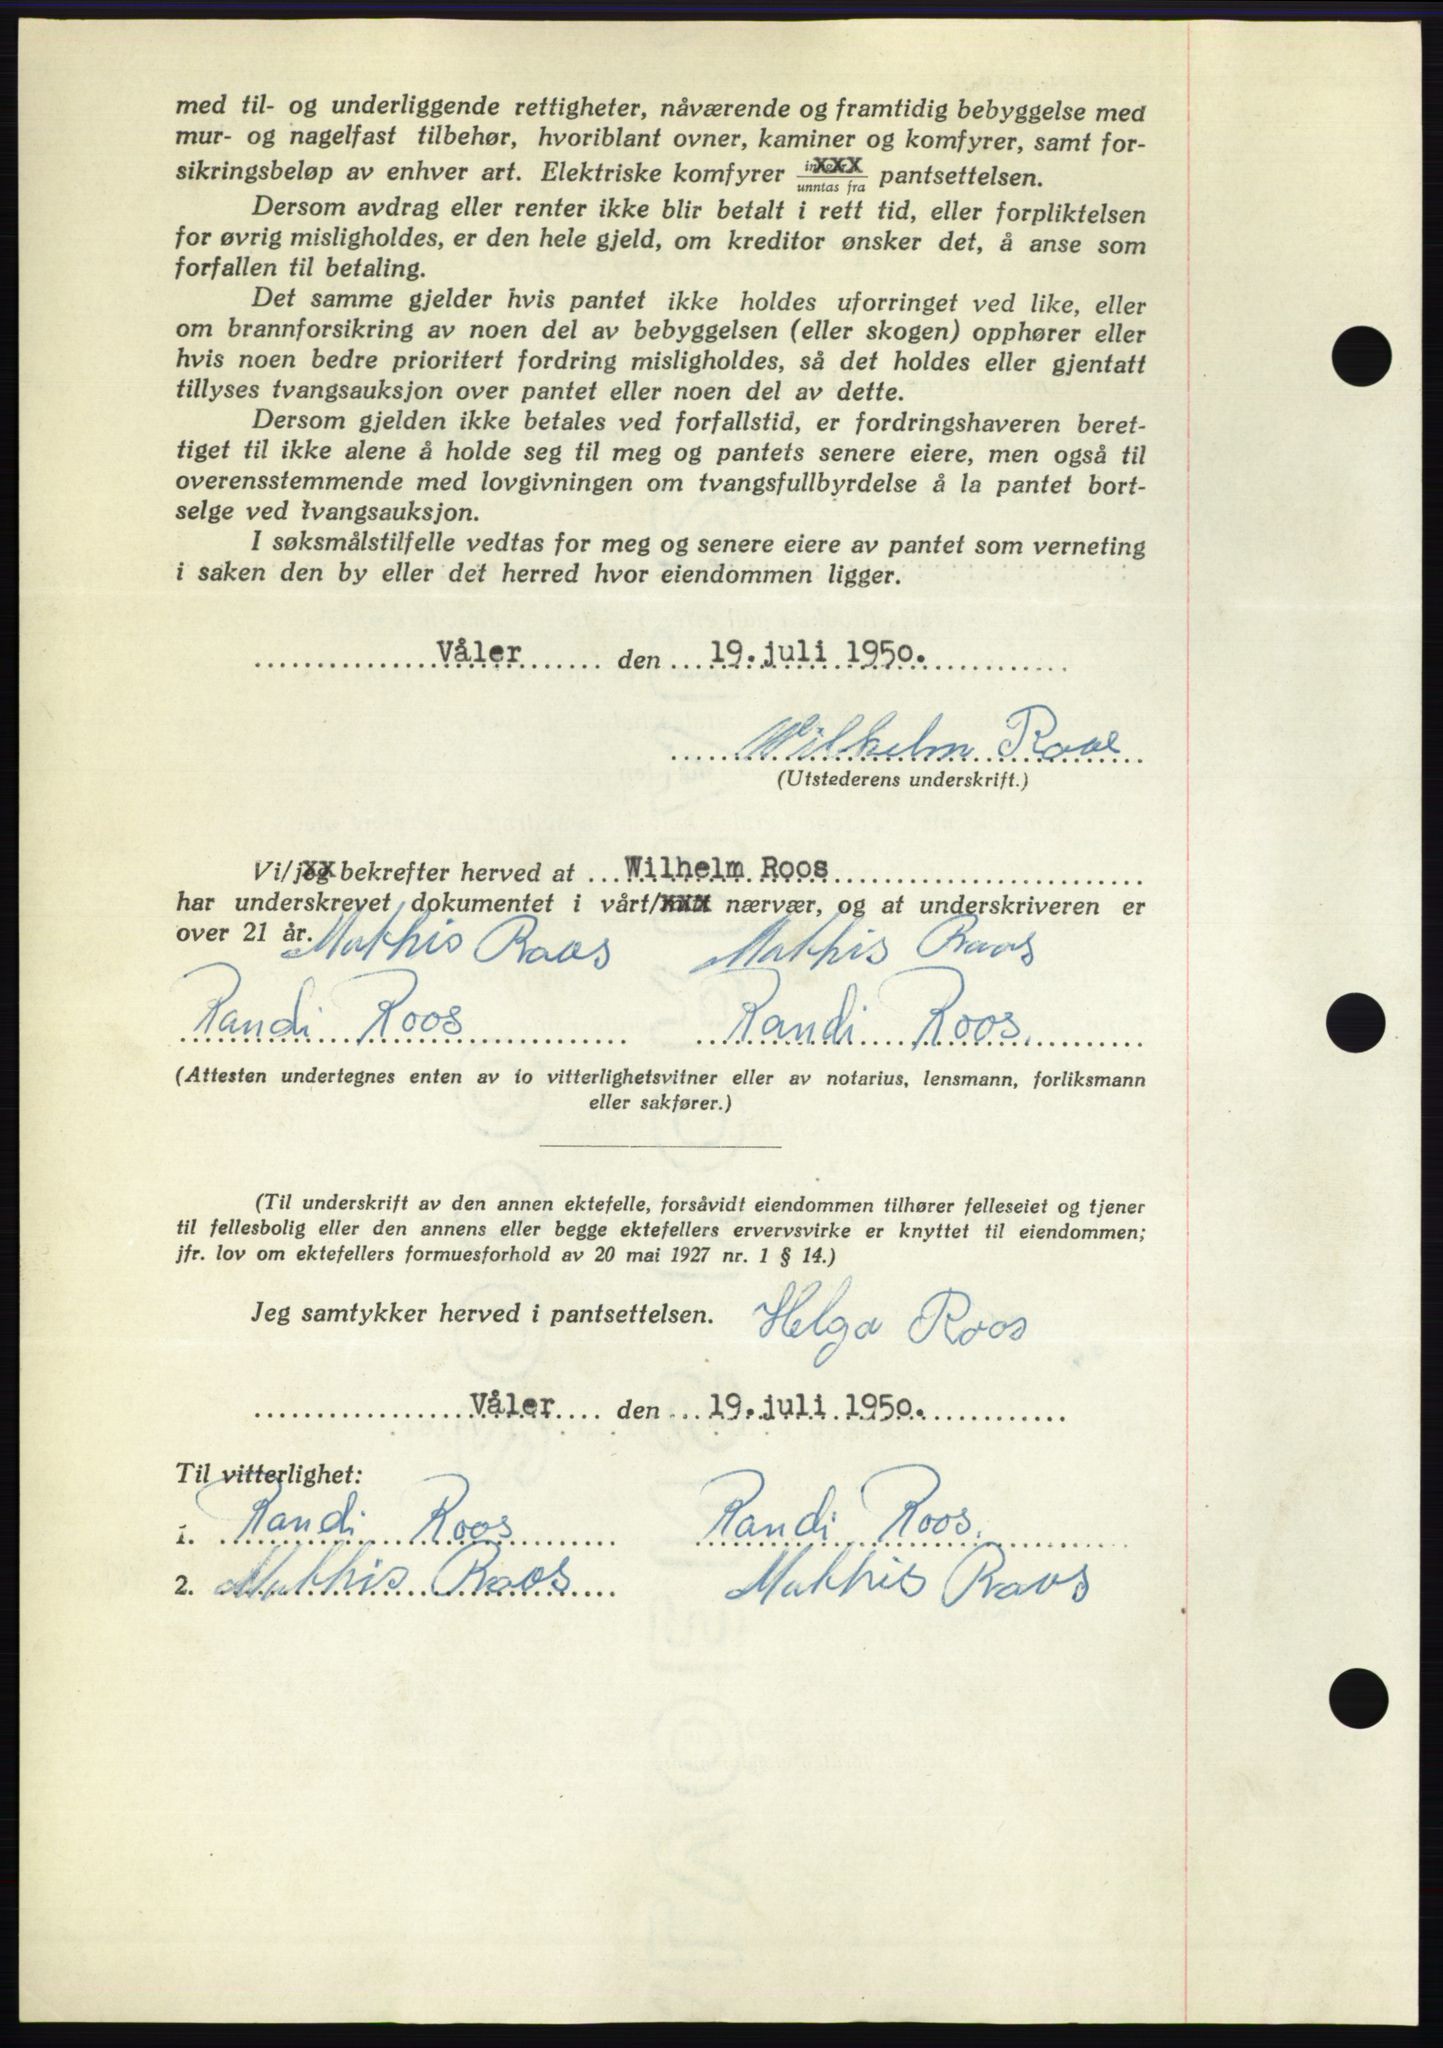 med til- og underliggende rettigheter, nåværende og framtidig bebyggelse med
mur- og nagelfast tilbehør, hvoriblant ovner, kaminer og komfyrer, samt for-
sikringsbeløp av enhver art. Elektriske komfyrer xxx unntas fra pantsettelsen.
Dersom avdrag eller renter ikke blir betalt i rett tid, eller forpliktelsen
for øvrig misligholdes, er den hele gjeld, om kreditor ønsker det, å anse som
forfallen til betaling.
Det samme gjelder hvis pantet ikke holdes uforringet ved like, eller
om brannforsikring av noen del av bebyggelsen (eller skogen) opphører eller
hvis noen bedre prioritert fordring misligholdes, så det holdes eller gjentatt
tillyses tvangsauksjon over pantet eller noen del av dette.
Dersom gjelden ikke betales ved forfallstid, er fordringshaveren beret-
tiget til ikke alene å holde seg til meg og pantets senere eiere, men også til
overensstemmende med lovgivningen om tvangsfullbyrdelse å la pantet bort-
selge ved tvangsauksjon.
I søksmålstilfelle vedtas for meg og senere eiere av pantet som verneting
i saken den by eller det herred hvor eiendommen ligger.
Våler den 19. juli 1950.
Wilhelm Roos
(Utstederens underskrift.)
Vi/jeg bekrefter herved at Wilhelm Roos
har underskrevet dokumentet i vårt/xxx nærvær, og at underskriveren er
over 21 år. Mathis Roos Mathis Roos
Randi Roos Randi Roos.
(Attesten undertegnes enten av to vitterlighetsvitner eller av notarius, lensmann, forliksmann
eller sakfører.)
(Til underskrift av den annen ektefelle, forsåvidt eiendommen tilhører felleseiet og tjener
til fellesbolig eller den annens eller begge ektefellers ervervsvirke er knyttet til eiendommen;
jfr. lov om ektefellers formuesforhold av 20 mai 1927 nr. 1 § 14.)
Jeg samtykker herved i pantsettelsen. Helga Roos
Våler den 19. juli 1950.
Til vitterlighet:
1. Randi Roos Randi Roos.
2. Mathis Roos Mathis Roos